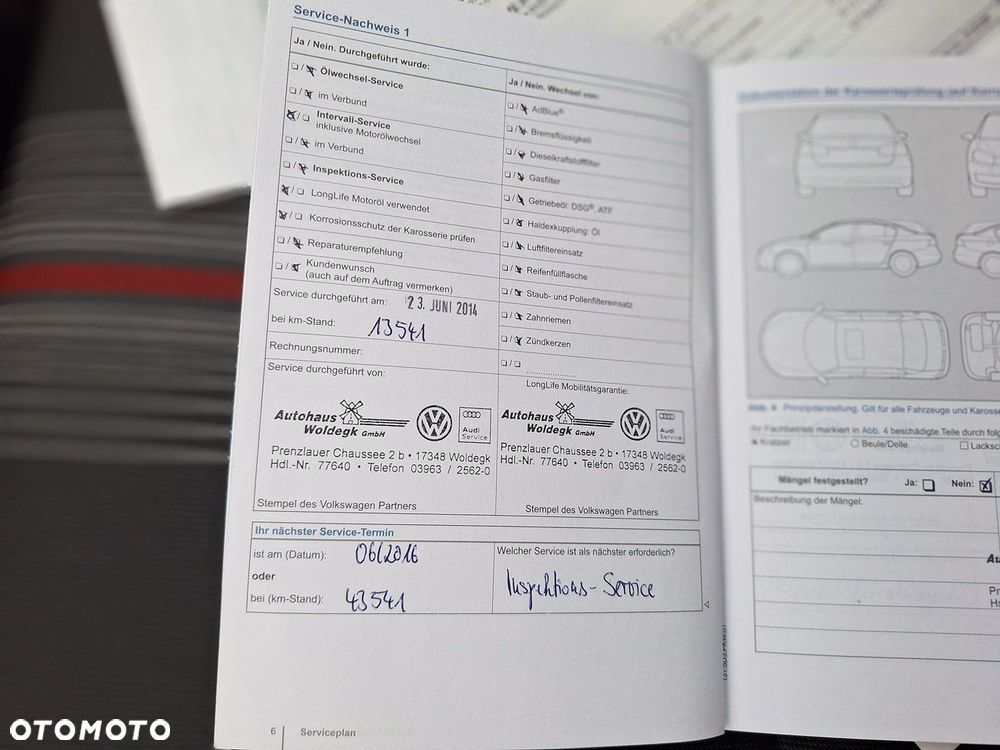 Service-Nachweis 1
Ja / Nein. Durchgeführt wurde:
Ölwechsel-Service
im Verbund
Intervall-Service
inklusive Motorölwechsel
im Verbund
Inspektions-Service
LongLife Motoröl verwendet
Korrosionsschutz der Karosserie prüfen
Reparaturempfehlung
Kundenwunsch
(auch auf dem Auftrag vermerken)
Service durchgeführt am: 23. JUNI 2014
bei km-Stand: 13541
Rechnungsnummer:
Service durchgeführt von:
Autohaus
Woldegk GmbH
Audi
Service
Prenzlauer Chaussee 2 b • 17348 Woldegk
Hdl.-Nr. 77640 • Telefon 03963 / 2562-0
Stempel des Volkswagen Partners
Ja / Nein. Wechsel von:
AdBlue®
Bremsflüssigkeit
Dieselkraftstofffilter
Gasfilter
Getriebeöl: DSG®, ATF
Haldexkupplung: Öl
Luftfiltereinsatz
Reifenfüllflasche
Staub- und Pollenfiltereinsatz
Zahnriemen
Zündkerzen
LongLife Mobilitätsgarantie:
Autohaus
Woldegk GmbH
Audi
Service
Prenzlauer Chaussee 2 b • 17348 Woldegk
Hdl.-Nr. 77640 • Telefon 03963 / 2562-0
Stempel des Volkswagen Partners
Ihr nächster Service-Termin
ist am (Datum): 06/2016
oder
bei (km-Stand): 43541
Welcher Service ist als nächster erforderlich?
Inspektions-Service
6 Serviceplan
Abb. 4 Prinzipdarstellung. Gilt für alle Fahrzeuge und
Ihr Fachbetrieb markiert in Abb. 4 beschädigte Teile durch
Kratzer Beule/Delle
Mängel festgestellt? Ja: Nein:
Beschreibung der Mängel:
OTOMOTO